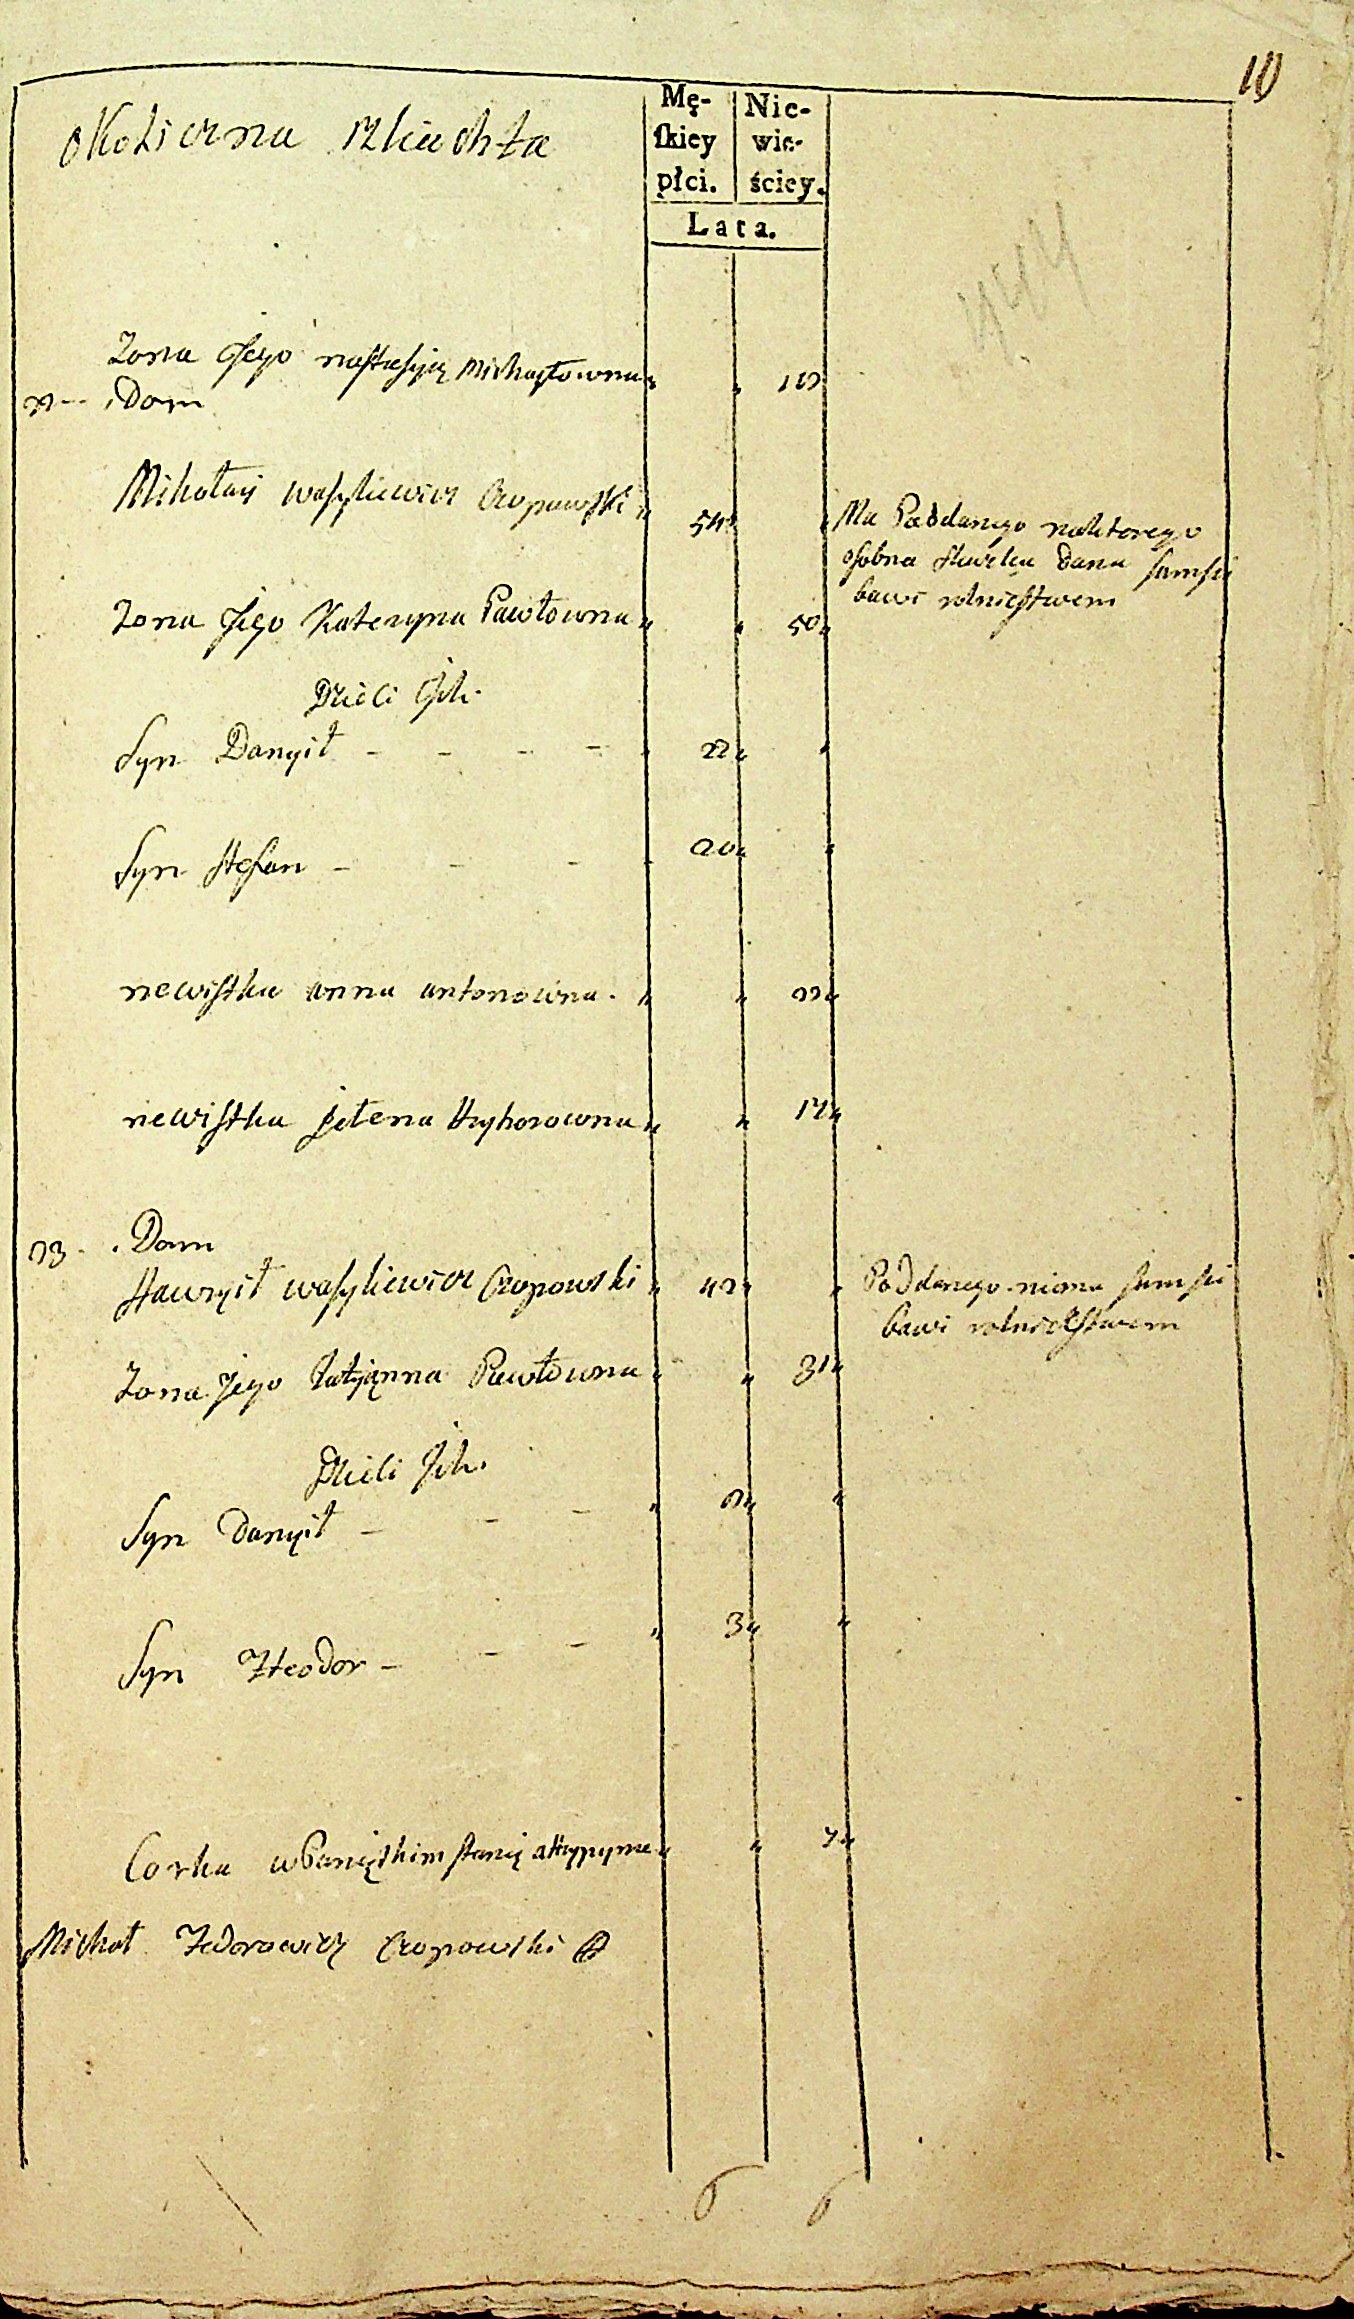 10
Okoliczna szlachta
Mę-
skiey
płci.
Nie-
wie-
ściey.
Lata.
Zona Jego nastasyją Michayłowna „ „ 19
22 -- Dom
Mikołaij wasyliewicz Czopowski „ 54 „
Ma Poddanego naktorego
osobna skazka Dana samsię
bawi rolnictwem
Zona Jego Kateryna Pawłowna „ „ 50 „
Dzieci Ich.
Syn Danyił - - - - 22 „ „
Syn stefan - - - - 20 „ „
newistka anna antonowna. „ „ 22 „
newistka jełena Hryhorowna „ „ 17 „
23 - Dom
Hawryił wasyliewicz Czopowski „ 42 „ „
Poddanego niema samsię
bawi rolnictwem
Zona Jego Tatyjanna Pawłowna „ „ 31 „
Dzieci Ich.
Syn Danyił - - - „ 9 „ „
Syn Theodor - - - „ 3 „ „
Corka wPanięskim stanię aHrypyna „ „ 7 „
Michał Fedorowicz Czopowski
6 6